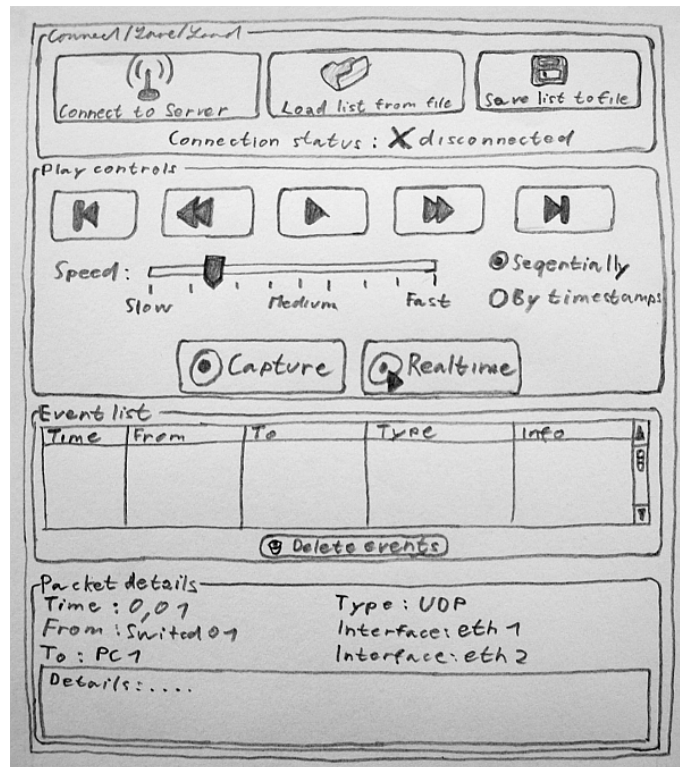 Connect/Save/Load
Connect to Server
Load list from file
Save list to file
Connection status : X disconnected
Play controls
Speed :
Slow
Medium
Fast
Seqentially
By timestamps
Capture
Realtime
Event list
Time From To Type Info
Delete events
Packet details
Time : 0,01
Type : UDP
From : Switch01
Interface: eth 1
To : PC 1
Interface: eth 2
Details:....